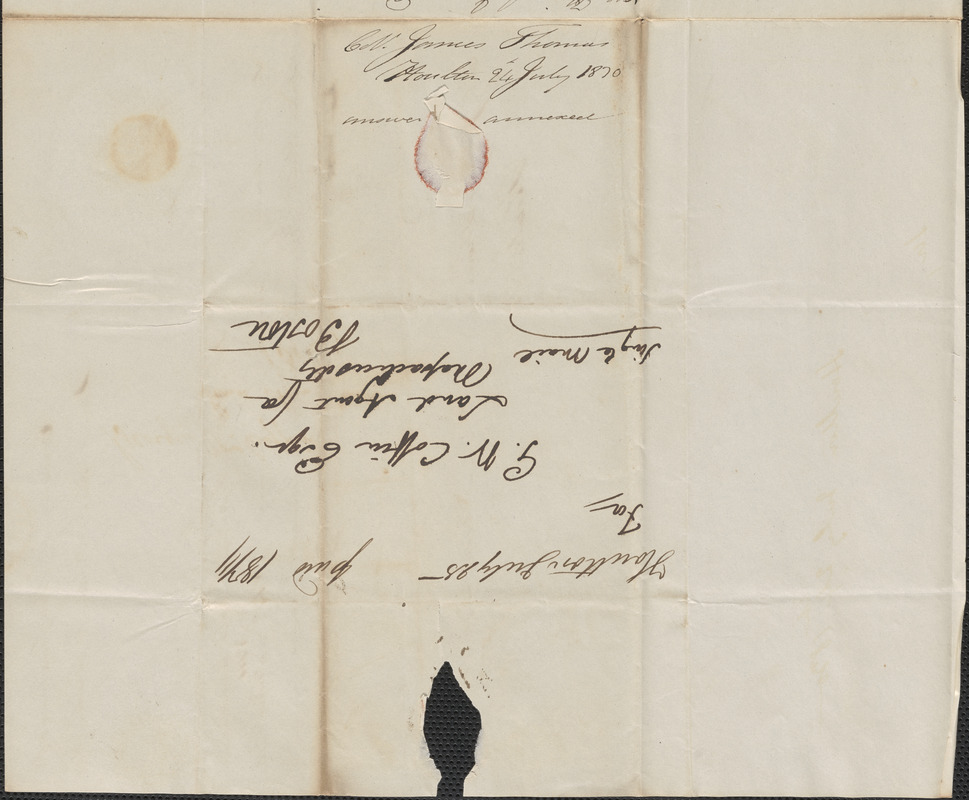 Col. James Thomas
Houlton 24 July 18
answer annexed
Houlton July 25 paid 18¾
For
G. W. Coffin Esqr.
Land Agent for
Massachusetts
Boston
Single Mail